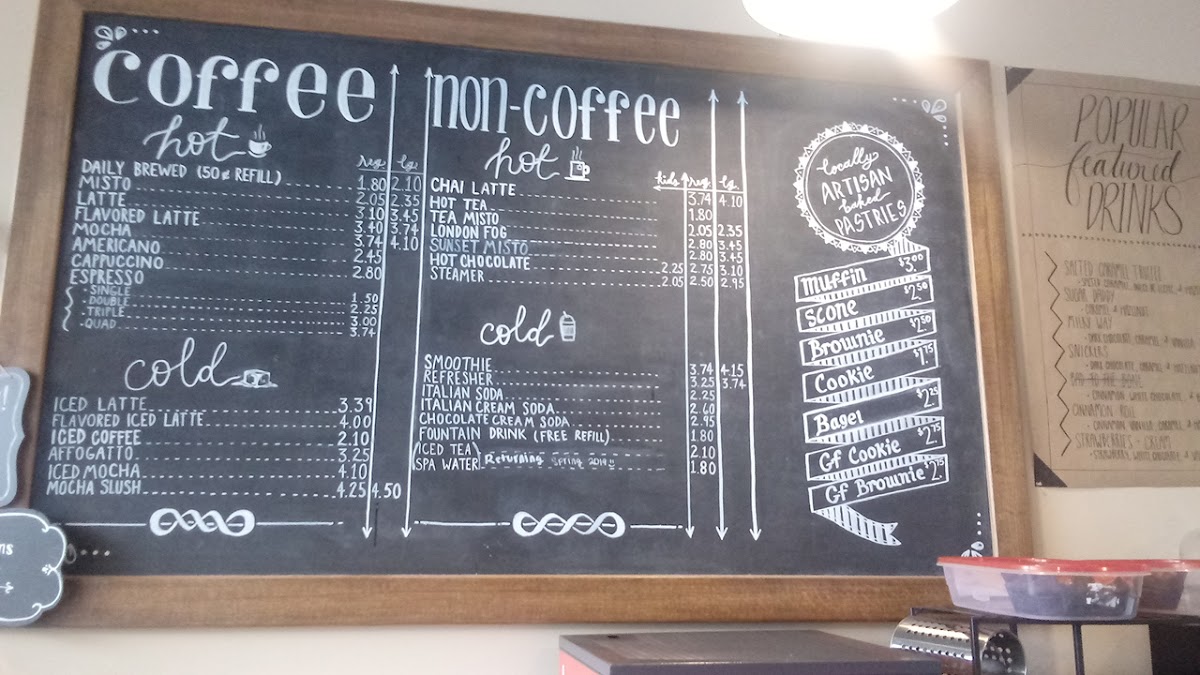 coffee
hot
reg. lg.
DAILY BREWED (50¢ REFILL) 1.80 2.10
MISTO 2.05 2.35
LATTE 3.10 3.45
FLAVORED LATTE 3.40 3.74
MOCHA 3.74 4.10
AMERICANO 2.45
CAPPUCCINO 2.80
ESPRESSO
- SINGLE 1.50
- DOUBLE 2.25
- TRIPLE 3.00
- QUAD 3.74
cold
ICED LATTE 3.39
FLAVORED ICED LATTE 4.00
ICED COFFEE 2.10
AFFOGATTO 3.25
ICED MOCHA 4.10
MOCHA SLUSH 4.25 4.50
non-coffee
hot
kids reg. lg.
CHAI LATTE 3.74 4.10
HOT TEA 1.80
TEA MISTO 2.05 2.35
LONDON FOG 2.80 3.45
SUNSET MISTO 2.80 3.45
HOT CHOCOLATE 2.25 2.75 3.10
STEAMER 2.05 2.50 2.95
cold
SMOOTHIE 3.74 4.15
REFRESHER 3.25 3.74
ITALIAN SODA 2.25
ITALIAN CREAM SODA 2.60
CHOCOLATE CREAM SODA 2.95
FOUNTAIN DRINK (FREE REFILL) 1.80
ICED TEA 2.10
SPA WATER Returning Spring 2019 1.80
locally
ARTISAN
baked
PASTRIES
Muffin $3.00
Scone $2.50
Brownie $2.50
Cookie $1.75
Bagel $2.25
Gf Cookie $2.75
Gf Brownie $2.75
POPULAR
featured
DRINKS
SALTED CARAMEL TRUFFLE
SUGAR DADDY
- CARAMEL & HAZELNUT
MILKY WAY
- DARK CHOCOLATE, CARAMEL, & VANILLA
SNICKERS
- DARK CHOCOLATE, CARAMEL, &
- CINNAMON, WHITE CHOCOLATE, &
CINNAMON ROLL
- CINNAMON, VANILLA, CARAMEL, &
STRAWBERRIES - CREAM
- STRAWBERRY, WHITE CHOCOLATE, &